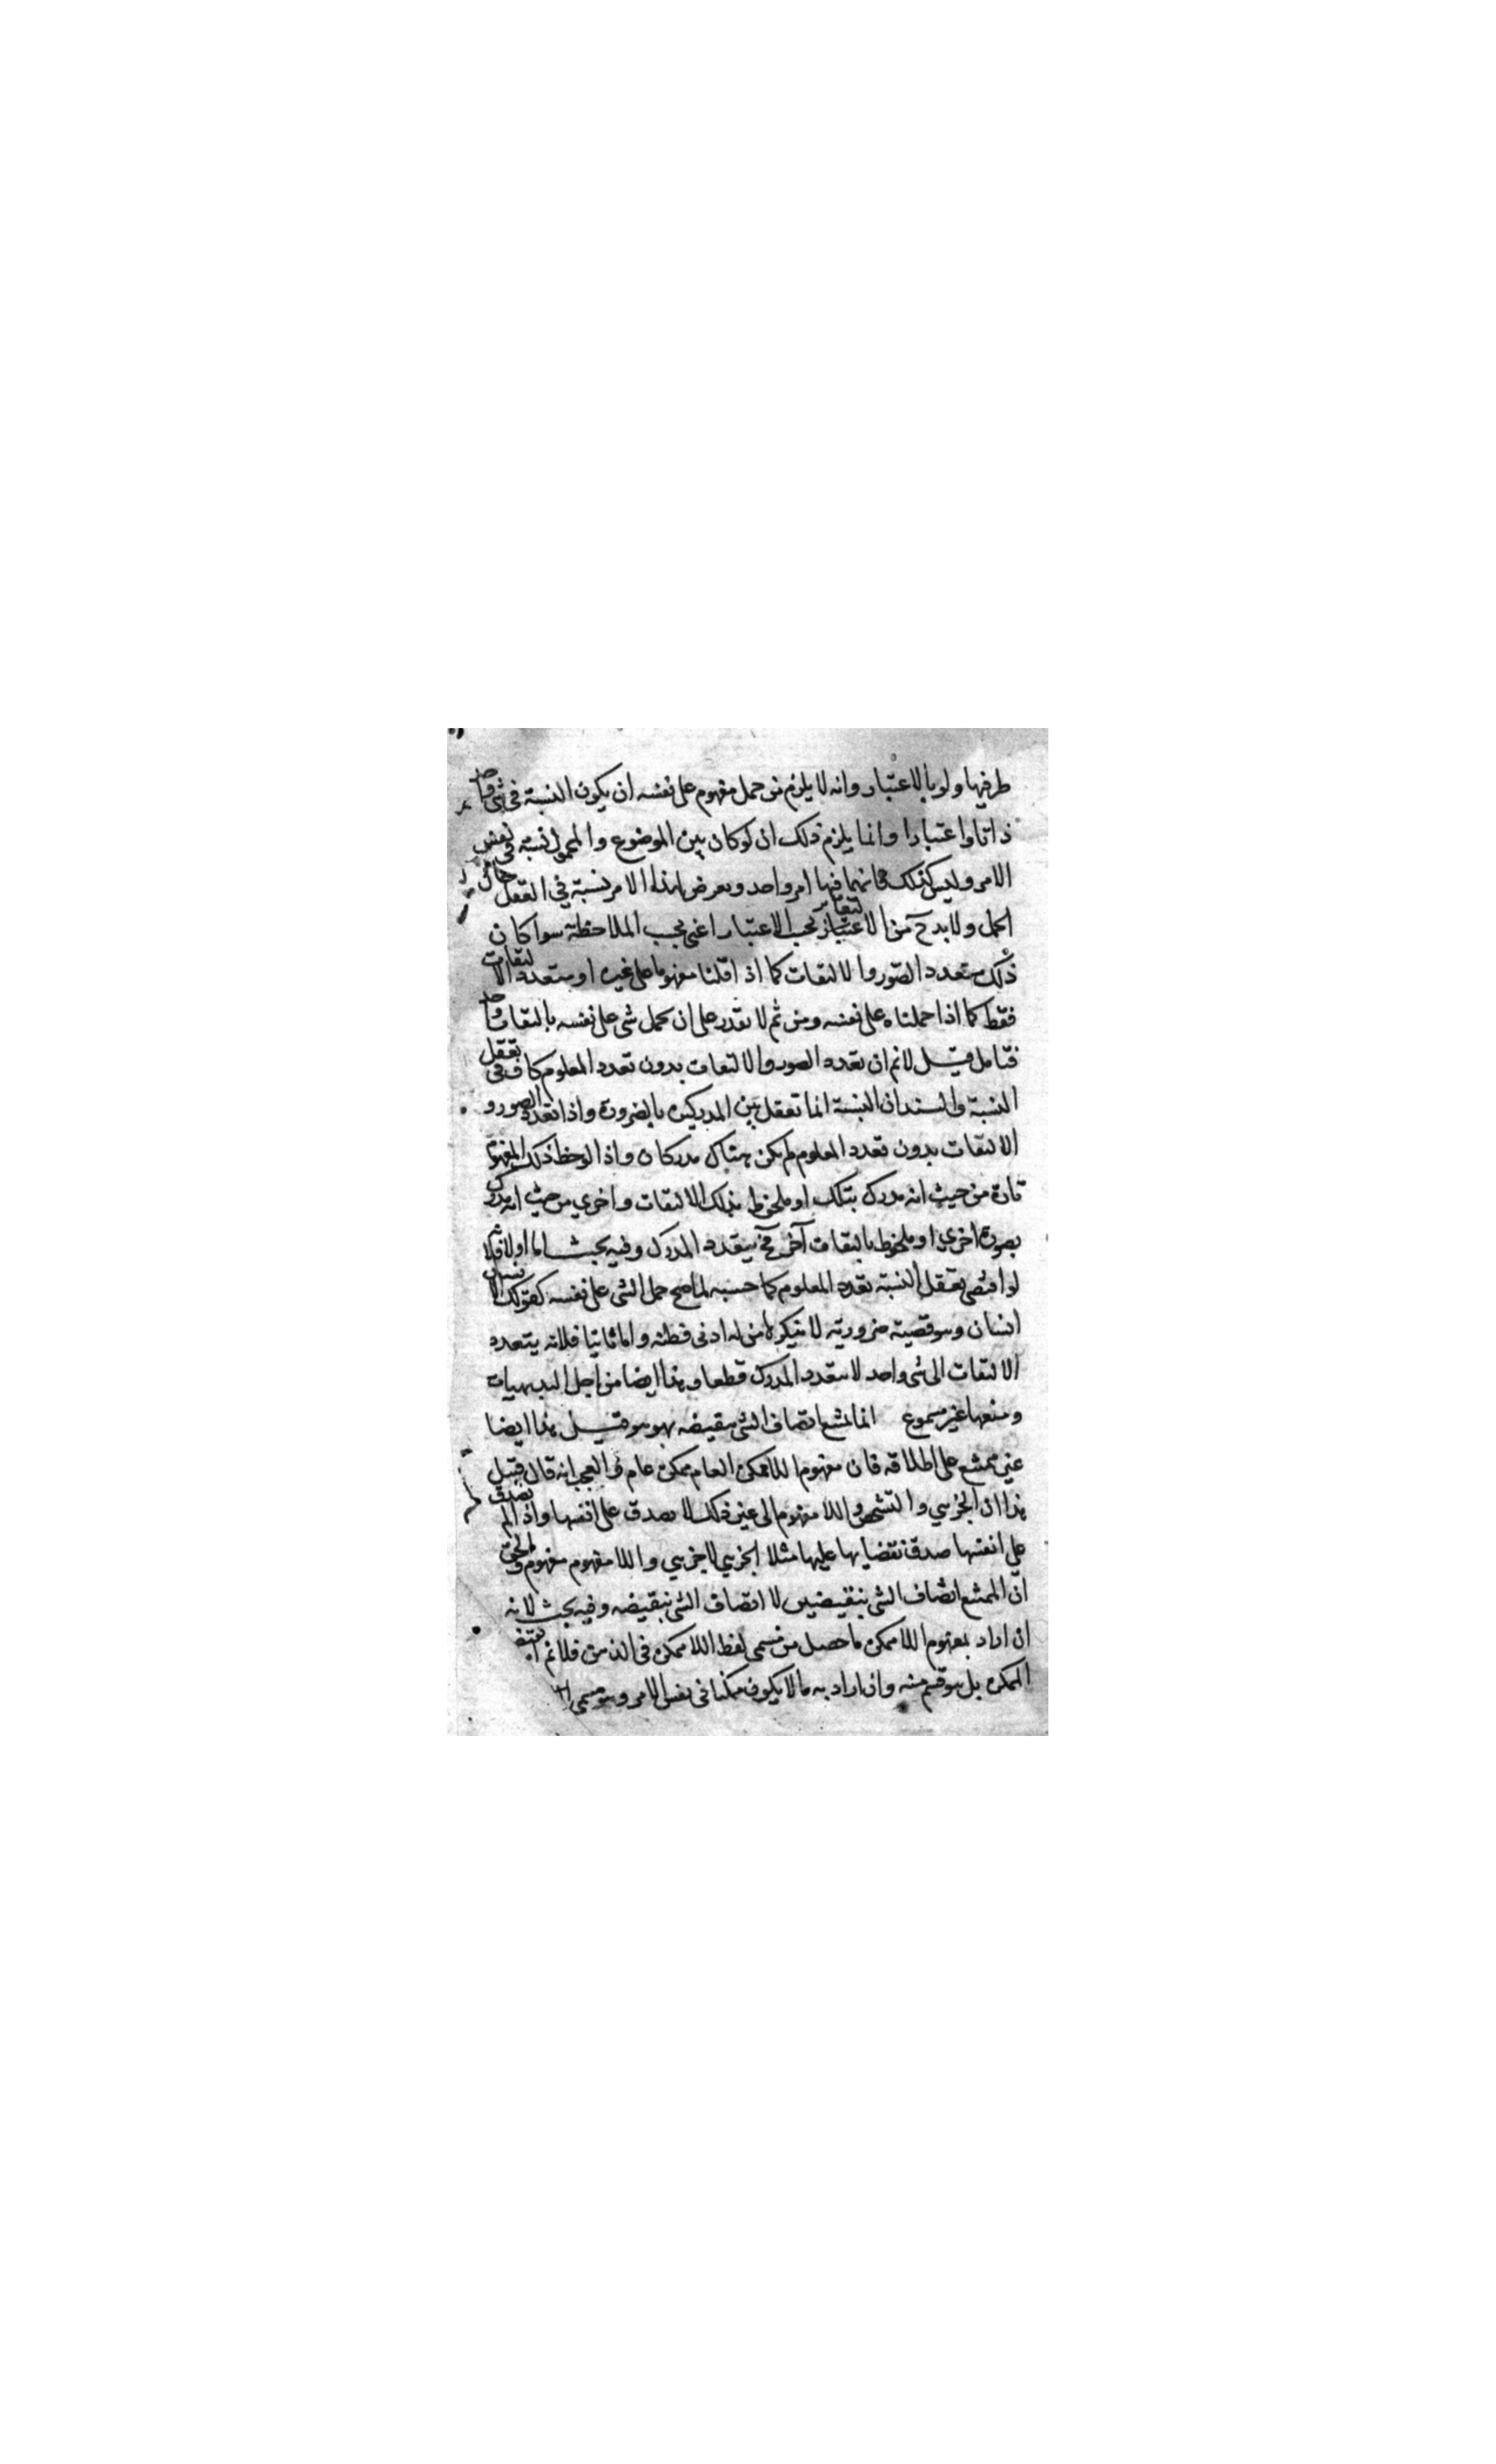 طرفيها ولو بالاعتبار وانه لا يلزم من حمل مفهوم على نفسه ان يكون النسبة في شئ واحد
ذاتا واعتبارا وانما يلزم ذلك ان لو كان بين الموضوع والمحمول نسبة في نفس
الامر وليس كذلك فانهما فيها امر واحد ويعرض لهذا الامر نسبة في العقل حال
الحمل ولا بد ح من التغاير بحسب الاعتبار اعني بحسب الملاحظة سوا كان
ذلك بتعدد الصور والالتفات كما اذا قلنا مفهوما على غيره او بتعدد الالتفات
فقط كما اذا حملناه على نفسه ومن ثم لا نقدر على ان نحمل شئ على نفسه بالتفات واحد
فتامل قيل لانم ان تعدد الصور والالتفات بدون تعدد المعلوم كاف في تعقل
النسبة والسند ان النسبة انما تعقل بين المدركين بالضرورة واذا تعدد الصور و
الالتفات بدون تعدد المعلوم لم يكن هناك مدركان واذا لوحظ ذلك المفهوم
تارة من حيث انه مدرك بتلك او ملحوظ بذلك الالتفات واخري من حيث انه مدرك
بصورة اخري او ملحوظ بالتفات آخر فح يتعدد المدرك وفيه بحث اما اولا فلانه
لو اقتضى تعقل النسبة تعدد المعلوم كما حسبه لما صح حمل الشئ على نفسه كقولك الانسان
انسان وهو قضية ضرورية لا ينكرها من له ادنى فطنة واما ثانيا فلانه يتعدد
الالتفات الى شئ واحد لا يتعدد المدرك قطعا وهذا ايضا من اجل البديهيات
ومنعها غير مسموع انما الممتنع اتصاف الشئ بنقيضه بهو هو قيل هذا ايضا
غير ممتنع على اطلاقه فان مفهوم اللاممكن العام ممكن عام والعجب انه قال قبيل
هذا ان الجزيي والتشخص واللا مفهوم الى غير ذلك لا يصدق على انفسها واذا لم يصدق
على انفسها صدق نقضايها عليها مثلا الجزيي لا جزيي واللا مفهوم مفهوم والحق
ان الممتنع اتصاف الشئ بنقيضين لا اتصاف الشئ بنقيضه وفيه بحث لانه
ان اراد بمفهوم اللاممكن ما حصل من مسمى لفظ اللاممكن في الذهن فلانم انه نقيض
الممكن بل هو قسم منه وان اراد به ما لا يكون ممكنا في نفس الامر وهو مسمى